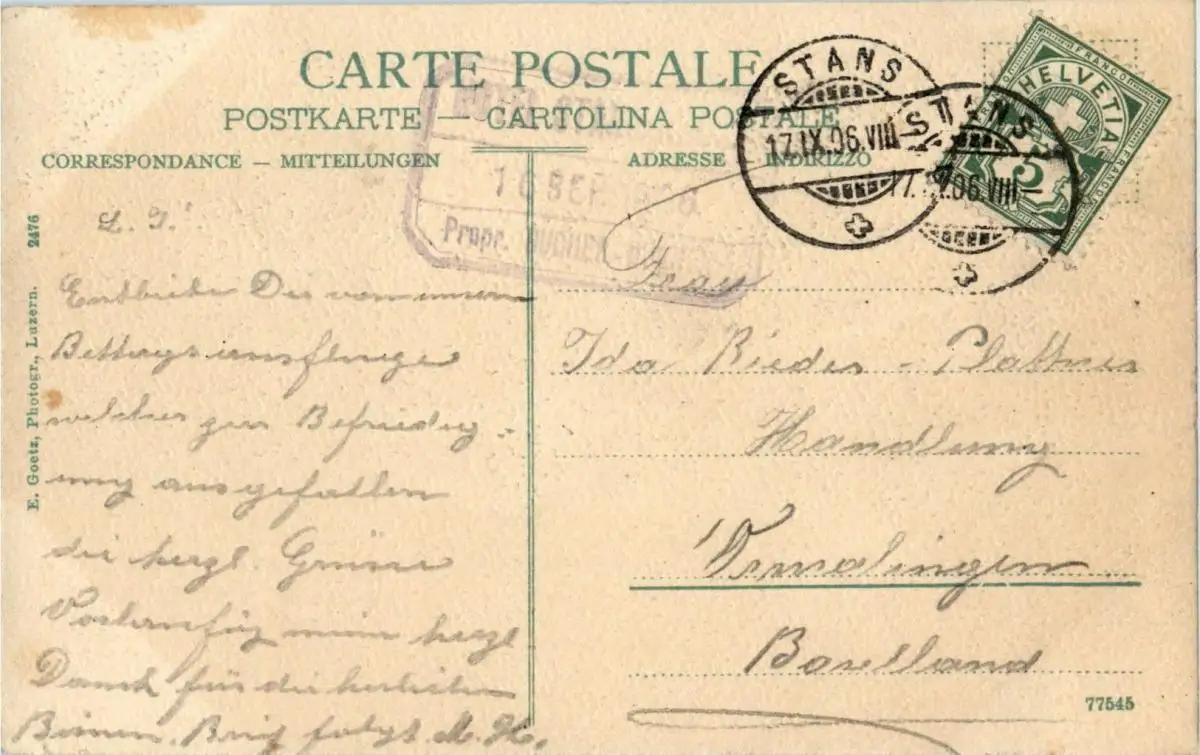 CARTE POSTALE
POSTKARTE — CARTOLINA POSTALE
CORRESPONDANCE — MITTEILUNGEN
ADRESSE INDIRIZZO
STANS
17.IX.06.VIII
STANS
06.VIII
HELVETIA
FRANCO
5
SEP
Propr.
E. Goetz, Photogr., Luzern. 2476
L. I.!
Entbiete Dir von unserm
Bettagsausfluge
welcher zur Befriedig-
ung ausgefallen
die herzl. Grüsse
Vorläufig mein herzl
Dank für die herrlichen
Birnen. Brief folgt M. H.
Frau
Ida Rieder-Plattner
Handlung
Ormalingen
Baselland
77545